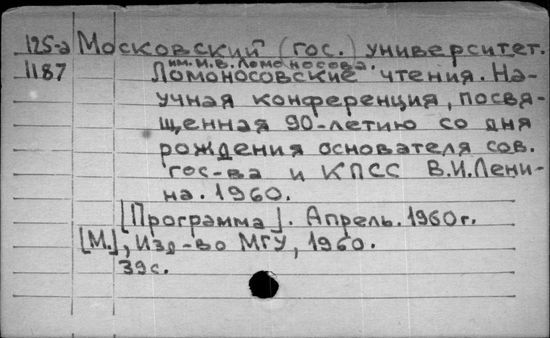 125-д Московский (гос.) университет.
им. М.В. Ломоносова.
1187 Ломоносовские чтения. На-
учная конференция, посвя-
щенная 90-летию со дня
рождения основателя сов.
гос-ва и КПСС В.И. Лени-
на. 1960.
[Программа]. Апрель. 1960 г.
[М.], Изд-во МГУ, 1960.
39 с.